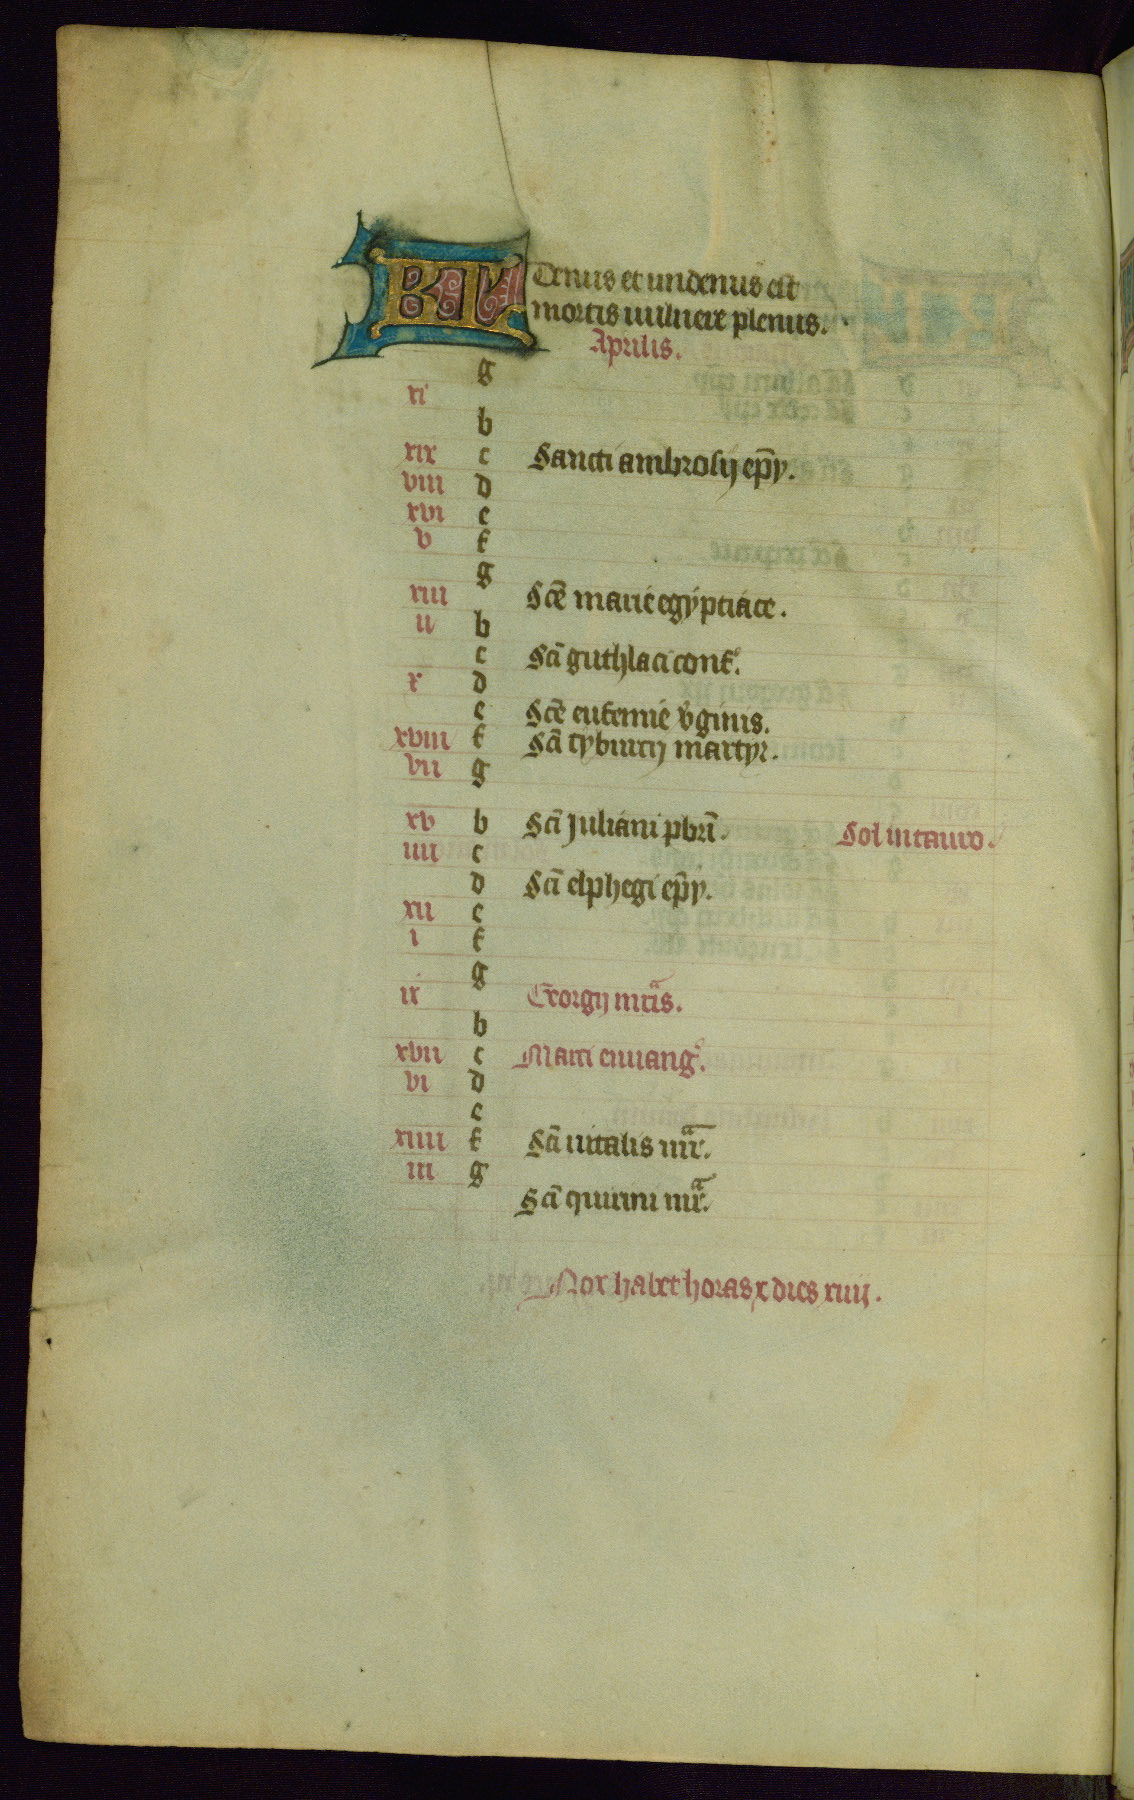 KL Denus et undenus est
mortis uulnere plenus.
Aprilis.
g
xi
b
xix c Sancti ambrosij ep̄y.
viii d
xvi e
v f
g
xiii Sc̄e marie egyptiace.
ii b
c Sc̄i guthlaci conf.
x d
e Sc̄e eufemie v̄ginis.
xviii f Sc̄i tyburcij martyr.
vii g
xv b Sc̄i Juliani pbri̅. Sol in tauro.
iiii c
d Sc̄i elphegi ep̄y.
xii e
i f
g
ix Georgij mr̄is.
b
xvii c Marci euuang.
vi d
e
xiiii f Sc̄i uitalis mr̄.
iii g
Sc̄i quirini mr̄.
Nox habet horas x dies xiiij.